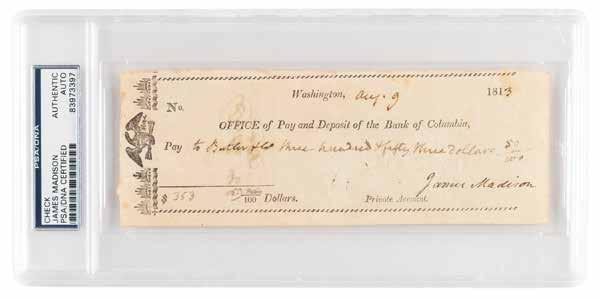 PSA/DNA
CHECK
JAMES MADISON
PSA/DNA CERTIFIED
AUTHENTIC
AUTO
83973397
Washington, Aug. 9 1813
No.
OFFICE of Pay and Deposit of the Bank of Columbia,
Pay to Butler & Co three hundred & fifty three Dollars 50/100
James Madison
$ 353 50/100 Dollars. Private Account.